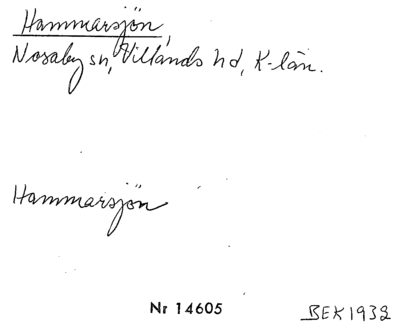 Hammarsjön,
Nosaby sn, Villands hd, K-län.
Hammarsjön
Nr 14605
BEK 1932